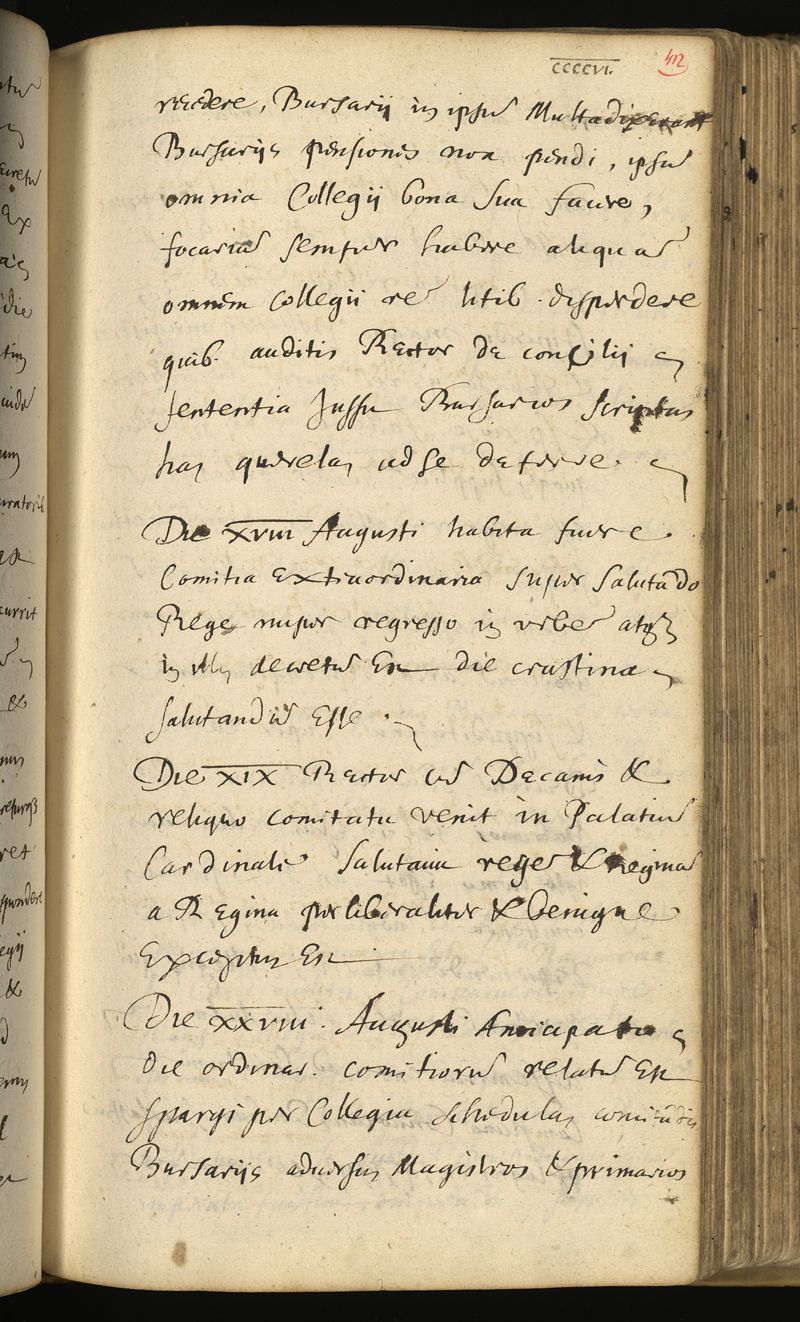 CCCCVI. 412
recedere, Bursarij in ipsū Multa dixerant
Bursarijs pensiones non pendi, ipsū
omnia Collegij bona sua facere,
focariā semper habere aliquā
omnem collegii rē litib. disperdere
quib. auditis Rector de consilij
sententia Jussit Bursarios scriptas
has querelas ad se deferre.
Die XVIII Augusti habita fuere
Comitia extraordinaria super salutādo
Rege nuper regresso in urbē atq3
in illis decretū Est die crastina
salutandū Esse.
Die XIX Rector cū Decanis &
reliquo comitatu venit in Palatiū
Cardinalē salutavit regē & Reginā
a Regina perliberaliter & benigne
Exceptus Est
Die XXVIII. Augusti Anticipato
die ordinar. comitiorū relatū Est
spargi per Collegia schedulas
Bursarijs adversus Magistros & primarios